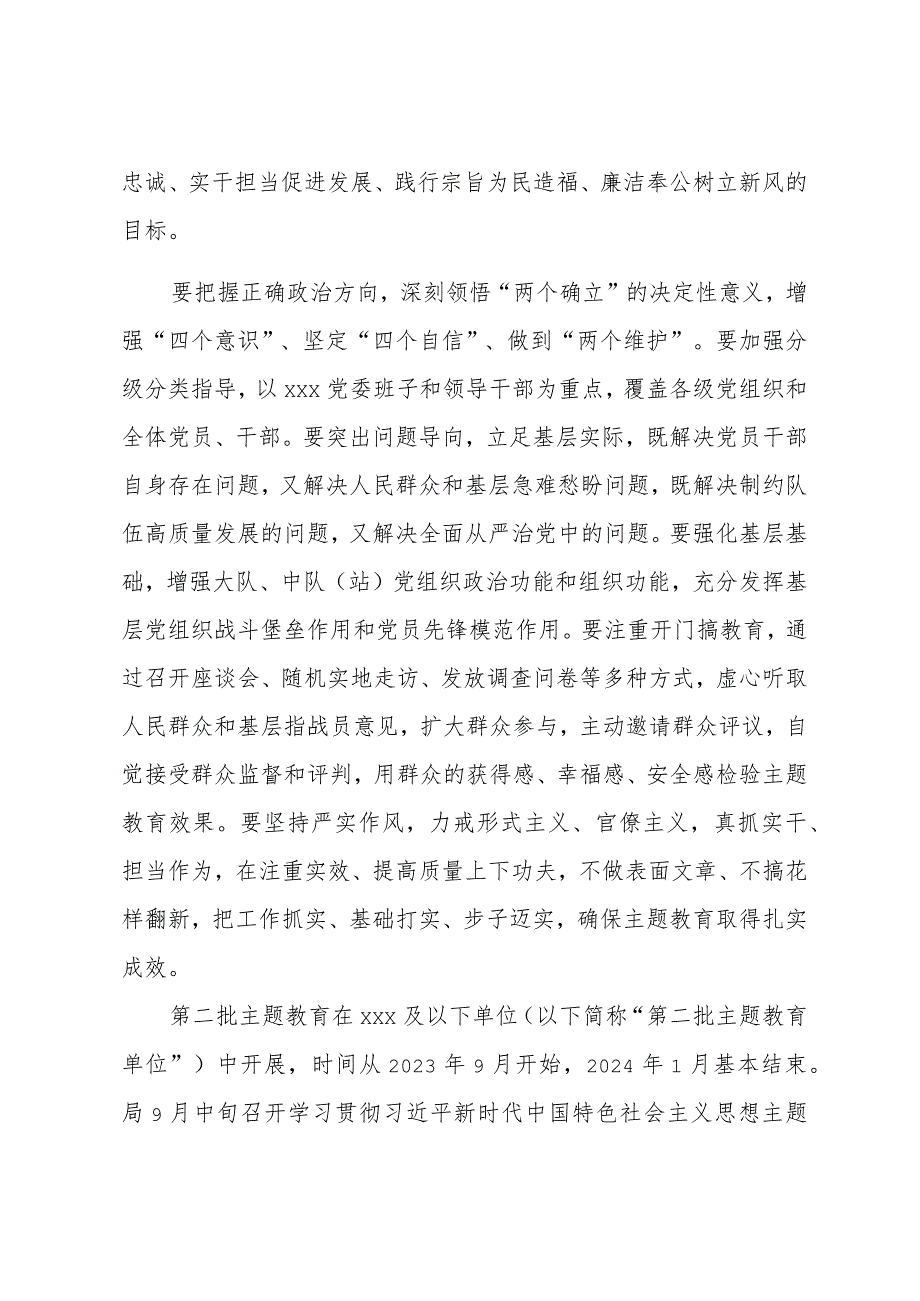 忠诚、实干担当促进发展、践行宗旨为民造福、廉洁奉公树立新风的
目标。
要把握正确政治方向，深刻领悟“两个确立”的决定性意义，增
强“四个意识”、坚定“四个自信”、做到“两个维护”。要加强分
级分类指导，以 xxx 党委班子和领导干部为重点，覆盖各级党组织和
全体党员、干部。要突出问题导向，立足基层实际，既解决党员干部
自身存在问题，又解决人民群众和基层急难愁盼问题，既解决制约队
伍高质量发展的问题，又解决全面从严治党中的问题。要强化基层基
础，增强大队、中队（站）党组织政治功能和组织功能，充分发挥基
层党组织战斗堡垒作用和党员先锋模范作用。要注重开门搞教育，通
过召开座谈会、随机实地走访、发放调查问卷等多种方式，虚心听取
人民群众和基层指战员意见，扩大群众参与，主动邀请群众评议，自
觉接受群众监督和评判，用群众的获得感、幸福感、安全感检验主题
教育效果。要坚持严实作风，力戒形式主义、官僚主义，真抓实干、
担当作为，在注重实效、提高质量上下功夫，不做表面文章、不搞花
样翻新，把工作抓实、基础打实、步子迈实，确保主题教育取得扎实
成效。
第二批主题教育在 xxx 及以下单位（以下简称“第二批主题教育
单位”）中开展，时间从 2023 年 9 月开始，2024 年 1 月基本结束。
局 9 月中旬召开学习贯彻习近平新时代中国特色社会主义思想主题